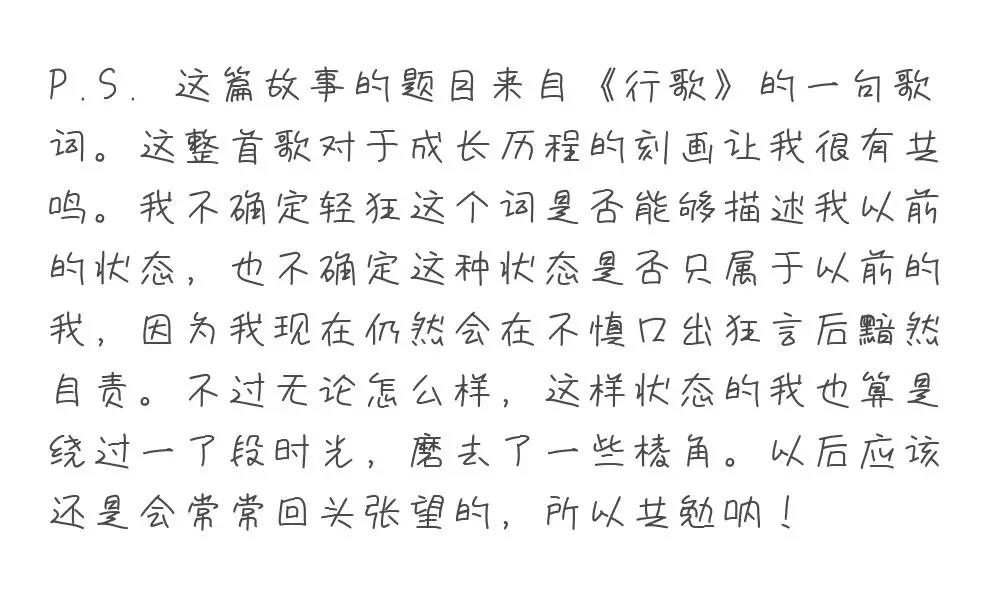 P.S. 这篇故事的题目来自《行歌》的一句歌
词。这整首歌对于成长历程的刻画让我很有共
鸣。我不确定轻狂这个词是否能够描述我以前
的状态，也不确定这种状态是否只属于以前的
我，因为我现在仍然会在不慎口出狂言后黯然
自责。不过无论怎么样，这样状态的我也算是
绕过一了段时光，磨去了一些棱角。以后应该
还是会常常回头张望的，所以共勉呐！